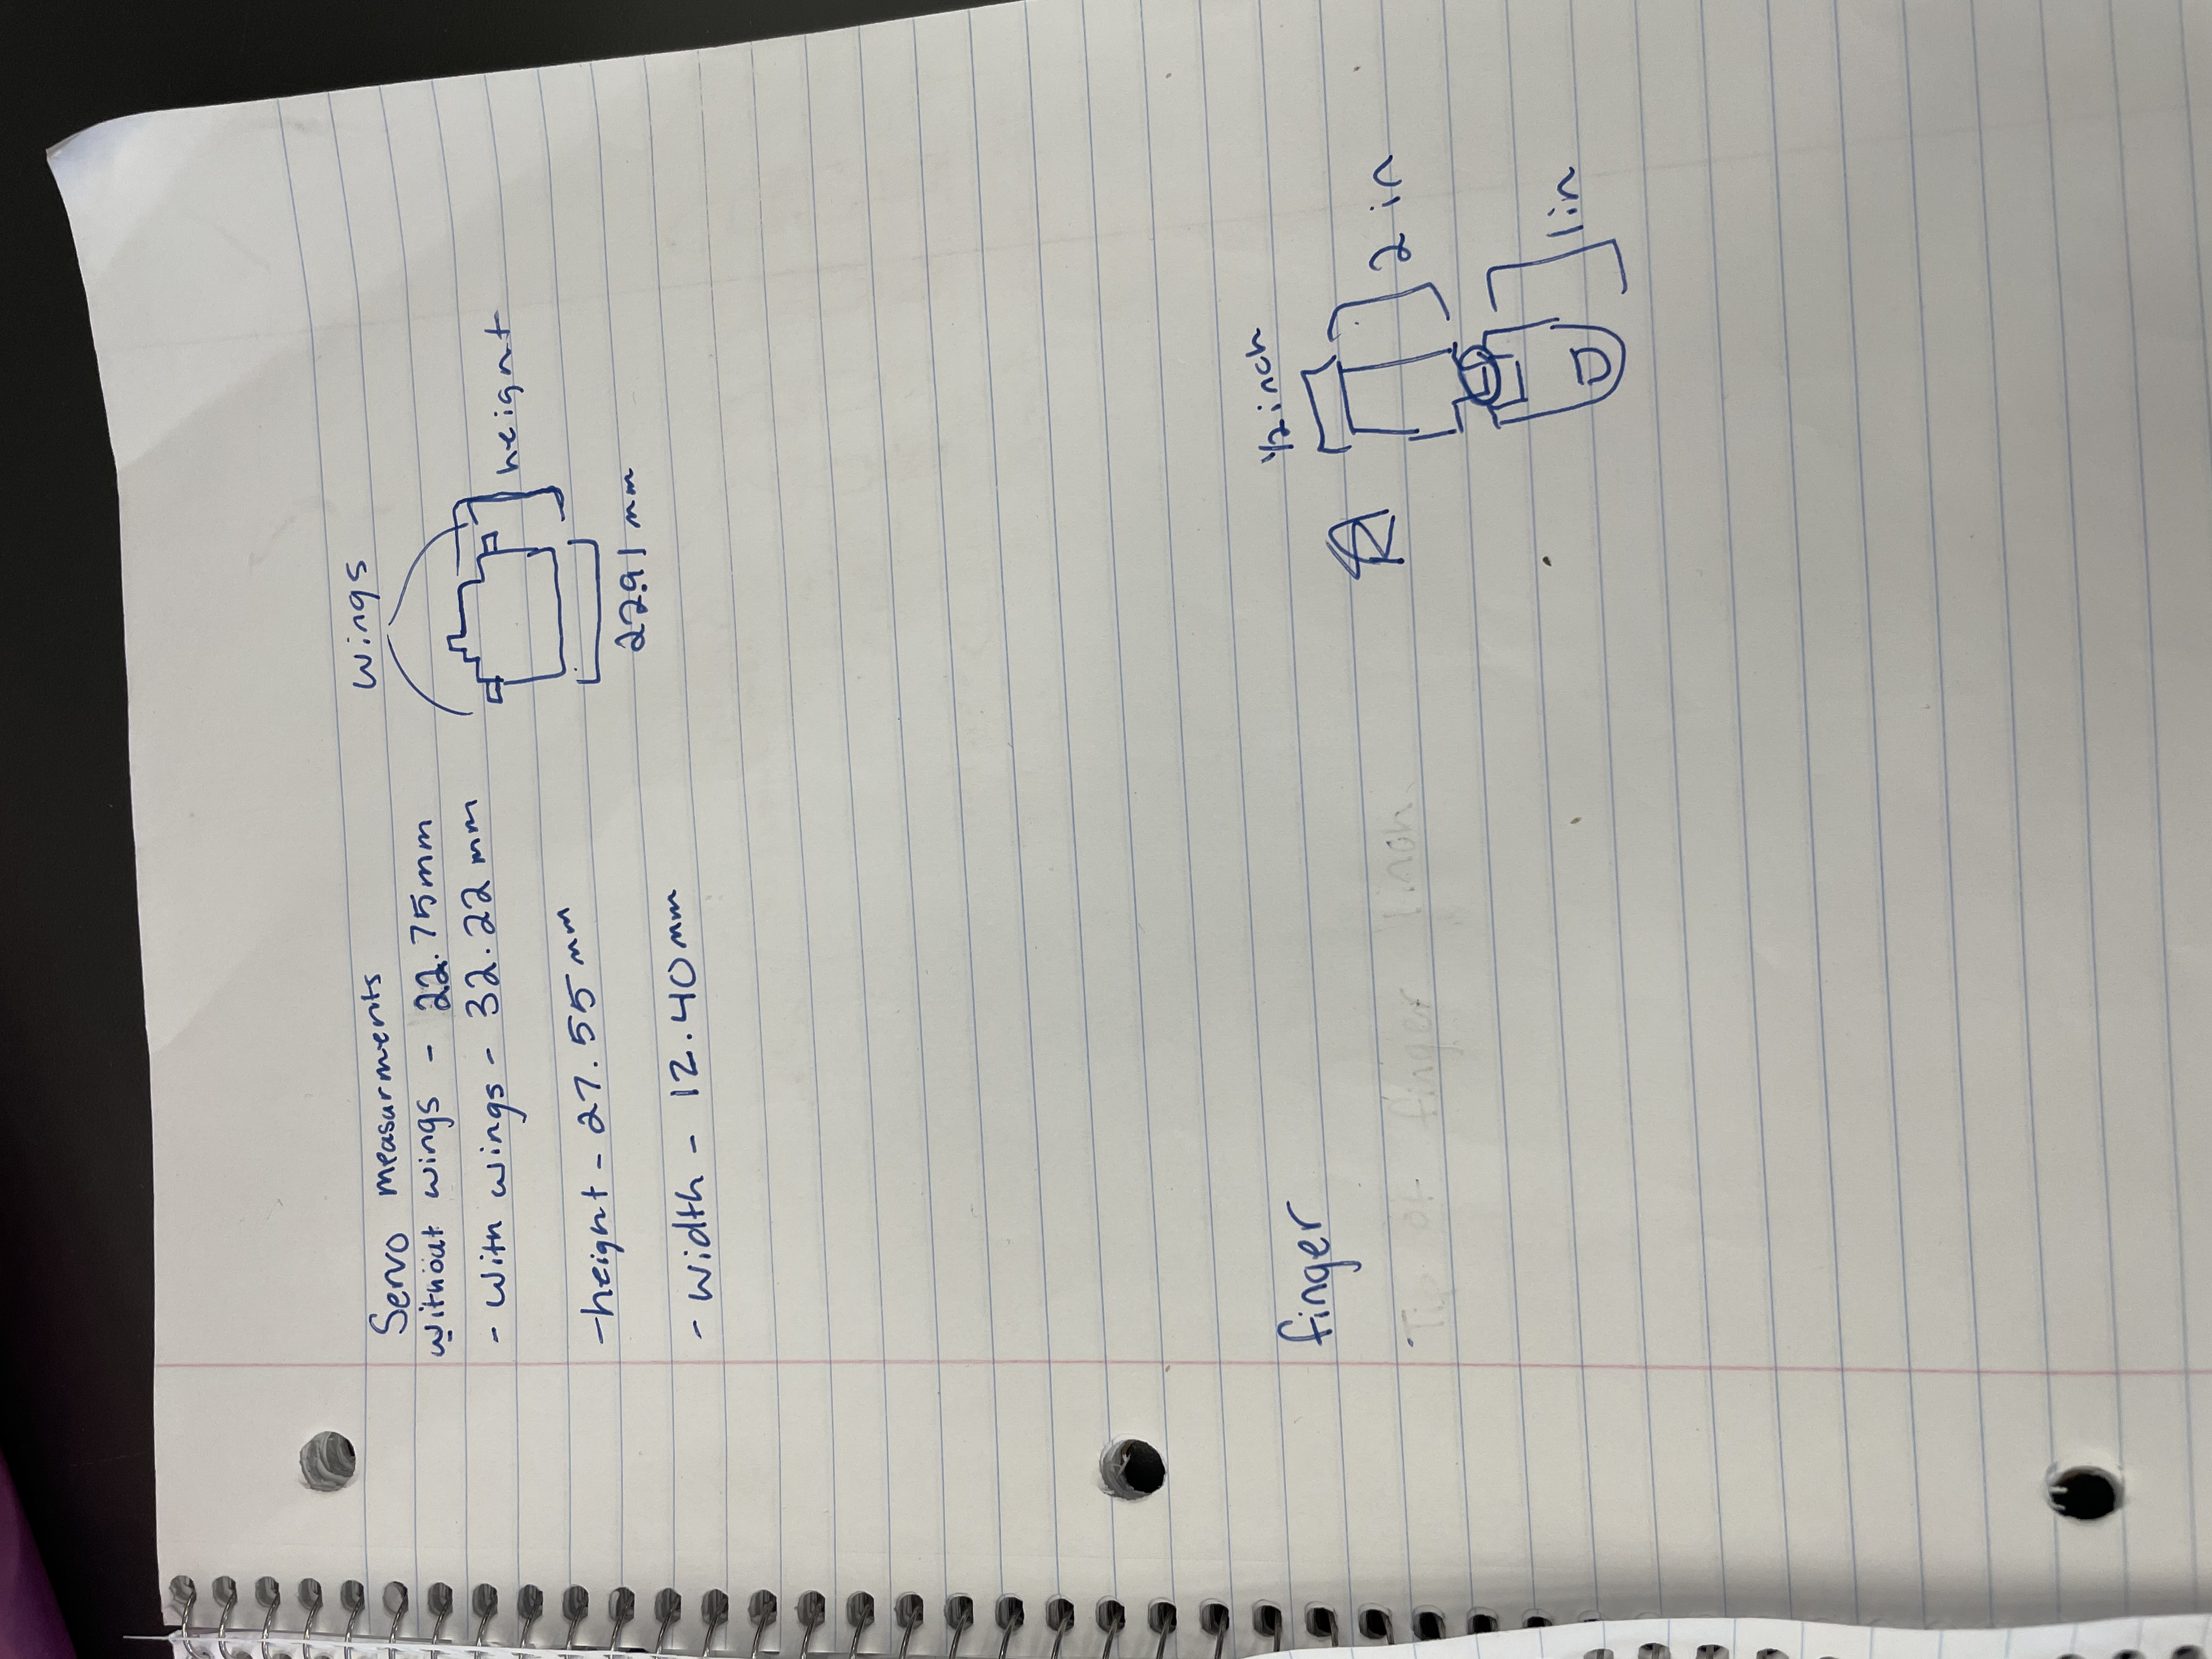 Servo measurments
without wings - 22.75mm
- With wings - 32.22 mm
-height - 27.55 mm
- width - 12.40mm
wings
height
22.91 mm
finger
Tip of finger 1 inch.
1/2 inch
2 in
1in